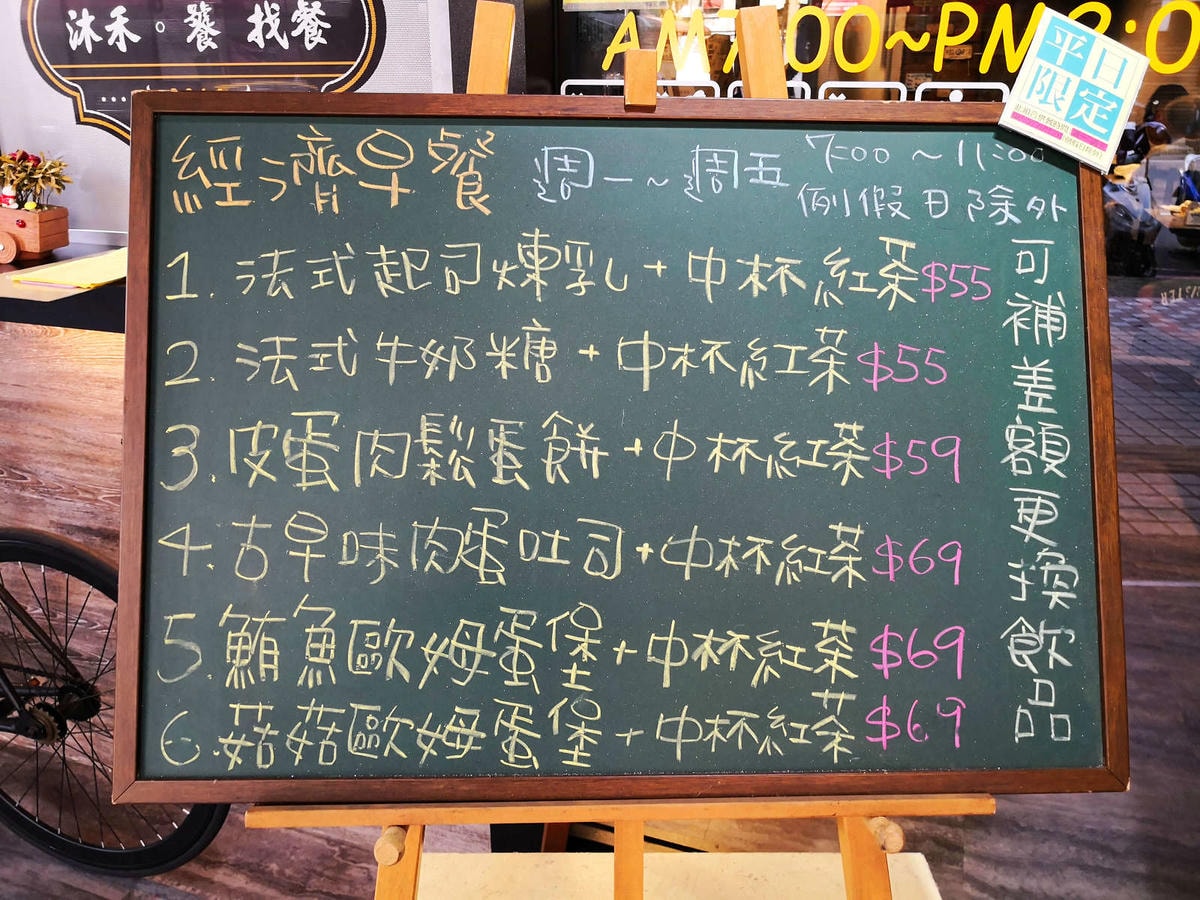 沐禾。饗 找餐
AM7:00~PM
平日
限定
經濟早餐
週一~週五
7:00~11:00
例假日除外
1. 法式起司煉乳+中杯紅茶$55
2. 法式牛奶糖+中杯紅茶$55
3. 皮蛋肉鬆蛋餅+中杯紅茶$59
4. 古早味肉蛋吐司+中杯紅茶$69
5. 鮪魚歐姆蛋堡+中杯紅茶$69
6. 菇菇歐姆蛋堡+中杯紅茶$69
可補差額更換飲品